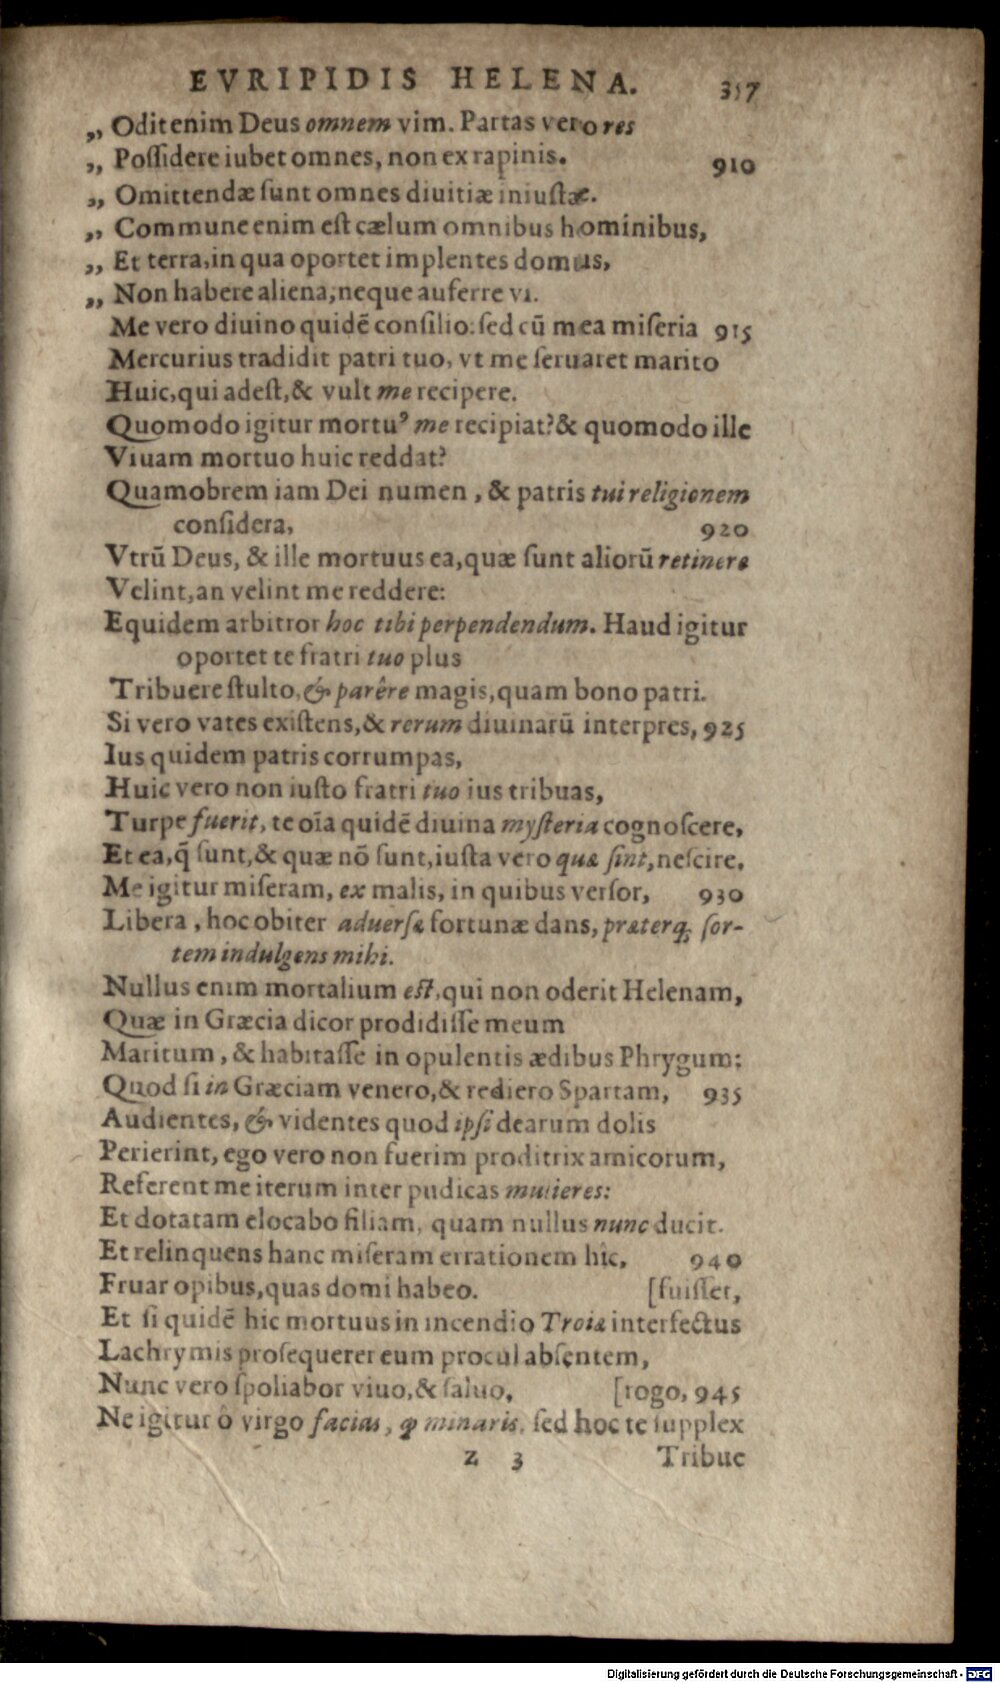 EVRIPIDIS HELENA. 357
„ Odit enim Deus omnem vim. Partas vero res
„ Possidere iubet omnes, non ex rapinis. 910
„ Omittendæ sunt omnes diuitiæ iniustæ.
„ Commune enim est cælum omnibus hominibus,
„ Et terra, in qua oportet implentes domus,
„ Non habere aliena, neque auferre vi.
Me vero diuino quidē consilio: sed cū mea miseria 915
Mercurius tradidit patri tuo, vt me seruaret marito
Huic, qui adest, & vult me recipere.
Quomodo igitur mortuꝰ me recipiat? & quomodo ille
Viuam mortuo huic reddat?
Quamobrem iam Dei numen, & patris tui religionem
considera, 920
Vtrū Deus, & ille mortuus ea, quæ sunt aliorū retinere
Velint, an velint me reddere:
Equidem arbitror hoc tibi perpendendum. Haud igitur
oportet te fratri tuo plus
Tribuere stulto, & parêre magis, quam bono patri.
Si vero vates existens, & rerum diuinarū interpres, 925
Ius quidem patris corrumpas,
Huic vero non iusto fratri tuo ius tribuas,
Turpe fuerit, te oīa quidē diuina mysteria cognoscere,
Et ea, q̄ sunt, & quæ nō sunt, iusta vero quæ sint, nescire.
Me igitur miseram, ex malis, in quibus versor, 930
Libera, hoc obiter aduersæ fortunæ dans, præterq; sor-
tem indulgens mihi.
Nullus enim mortalium est, qui non oderit Helenam,
Quæ in Græcia dicor prodidisse meum
Maritum, & habitasse in opulentis ædibus Phrygum:
Quod si in Græciam venero, & rediero Spartam, 935
Audientes, & videntes quod ipsi dearum dolis
Perierint, ego vero non fuerim proditrix amicorum,
Referent me iterum inter pudicas mulieres:
Et dotatam elocabo filiam, quam nullus nunc ducit.
Et relinquens hanc miseram errationem hîc, 940
Fruar opibus, quas domi habeo. [fuisset,
Et si quidē hic mortuus in incendio Troiæ interfectus
Lachrymis prosequerer eum procul absentem,
Nunc vero spoliabor viuo, & saluo, [rogo, 945
Ne igitur ô virgo facias, ꝙ minaris, sed hoc te supplex
Z 3 Tribue
Digitalisierung gefördert durch die Deutsche Forschungsgemeinschaft - DFG